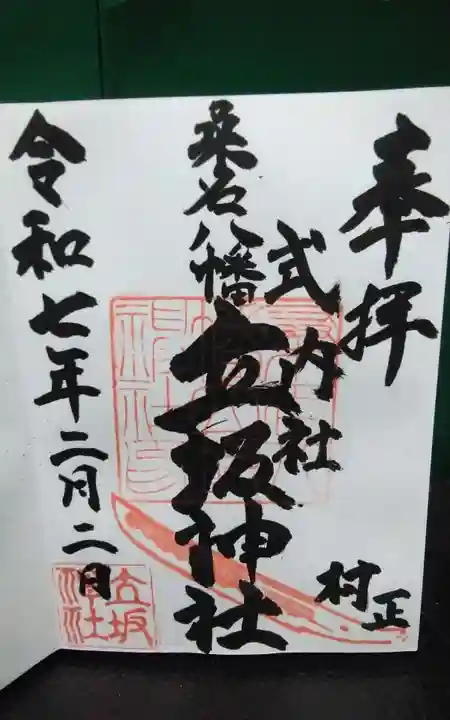 奉拝
式内社
桑名八幡
立坂神社
村正
令和七年二月二日
立坂
神社